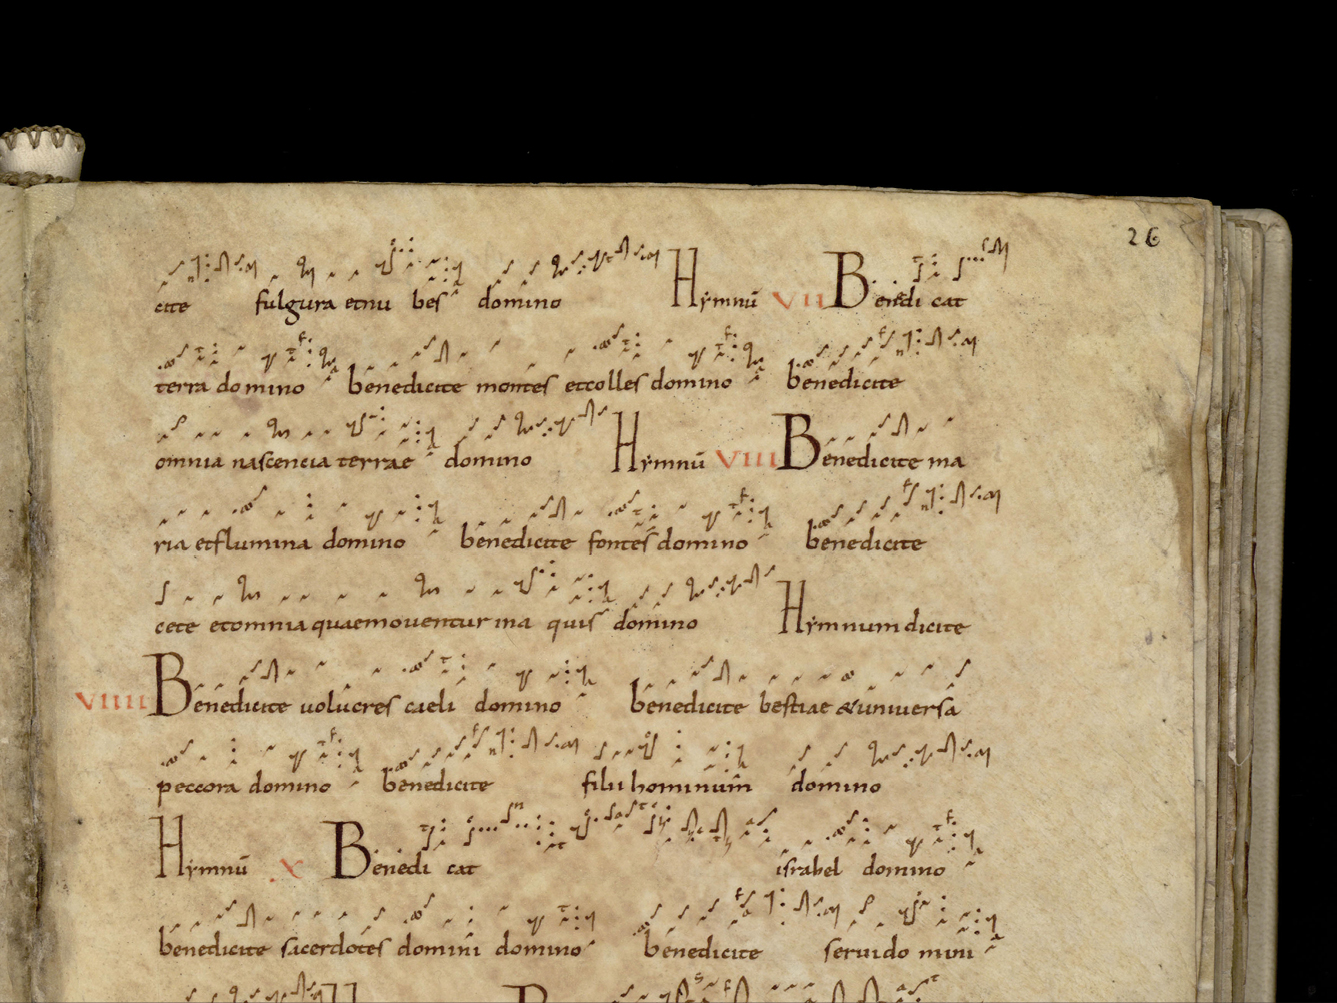 26
cite fulgura etnu bes domino Hymnū VII Benedi cat
terra domino benedicite montes etcolles domino benedicite
omnia nascencia terrae domino Hymnū VIII Benedicite ma
ria etflumina domino benedicite fontes domino benedicite
cete etomnia quaemoventur ina quis domino Hymnum dicite
VIIII Benedicite uolucres caeli domino benedicite bestiae &universa
peccora domino benedicite filii hominum domino
Hymnū X Benedi cat israhel domino
benedicite sacerdotes domini domino benedicite serui do mini